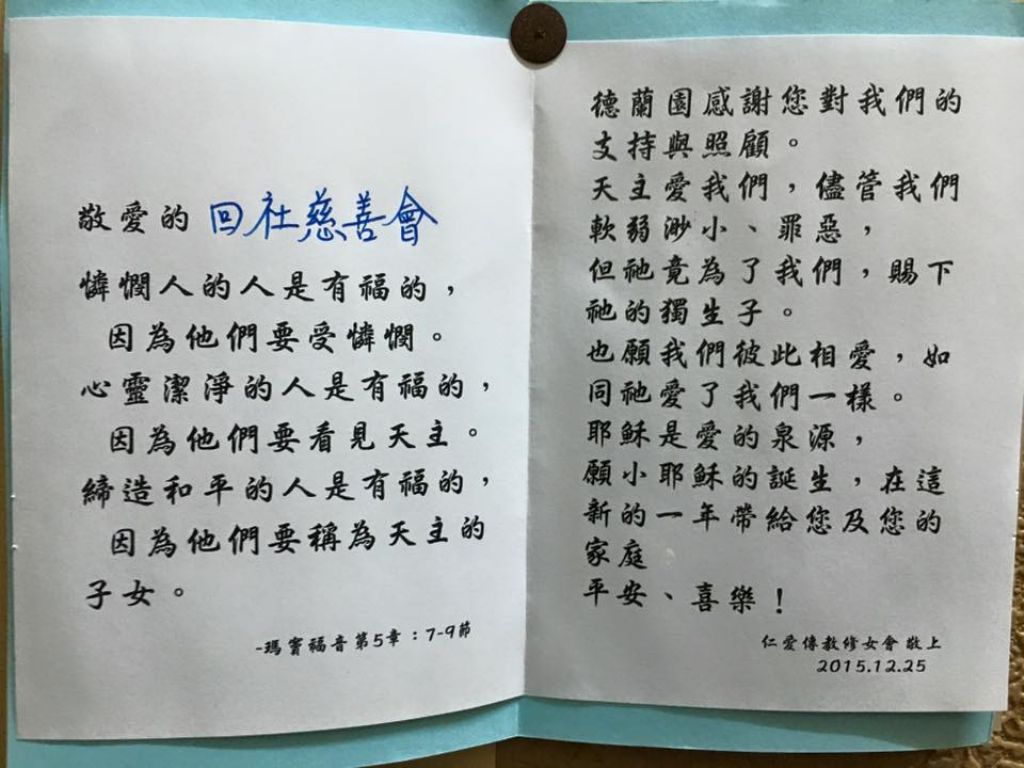 敬愛的 回社慈善會
憐憫人的人是有福的，
因為他們要受憐憫。
心靈潔淨的人是有福的，
因為他們要看見天主。
締造和平的人是有福的，
因為他們要稱為天主的
子女。
-瑪竇福音第5章：7-9節
德蘭園感謝您對我們的
支持與照顧。
天主愛我們，儘管我們
軟弱渺小、罪惡，
但祂竟為了我們，賜下
祂的獨生子。
也願我們彼此相愛，如
同祂愛了我們一樣。
耶穌是愛的泉源，
願小耶穌的誕生，在這
新的一年帶給您及您的
家庭
平安、喜樂！
仁愛傳教修女會 敬上
2015.12.25